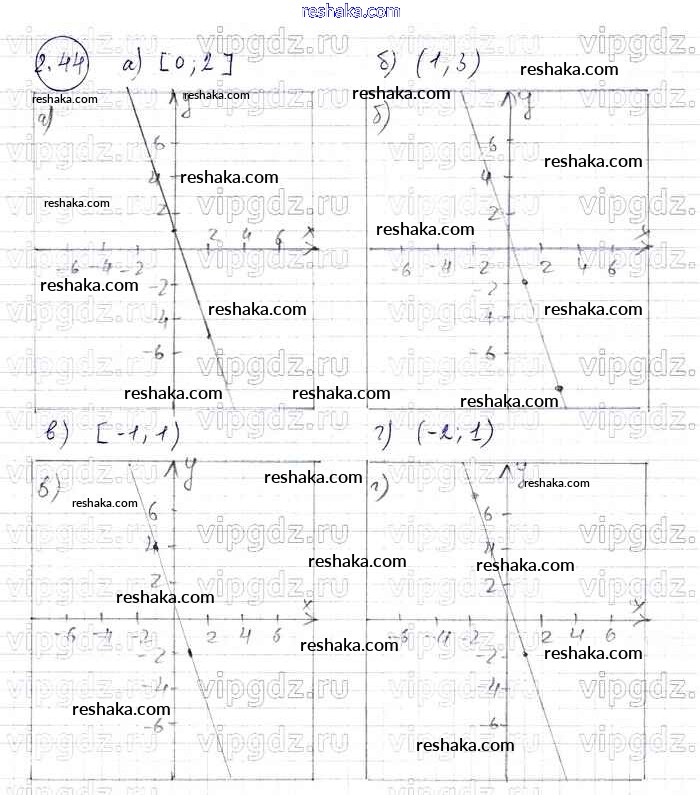 reshaka.com
2.44 а) [0; 2] б) (1, 3)
reshaka.com
reshaka.com reshaka.com
vipgdz.ru vipgdz.ru
а) y б) y
6 6
reshaka.com
4 reshaka.com 4
2 reshaka.com 2
reshaka.com
2 4 6 x x
-6 -4 -2 -6 -4 -2 2 4 6
-2 reshaka.com -2
vipgdz.ru vipgdz.ru
-4 reshaka.com -4 reshaka.com
-6 -6
reshaka.com reshaka.com reshaka.com
в) [-1; 1) г) (-2; 1)
vipgdz.ru vipgdz.ru
в) y reshaka.com г) y reshaka.com
reshaka.com
6 6
4 4
reshaka.com
2 reshaka.com 2
x x
-6 -4 -2 2 4 6 -6 -4 -2 2 4 6
reshaka.com
-2 -2 reshaka.com
vipgdz.ru vipgdz.ru
-4 -4
reshaka.com
-6 -6
reshaka.com
vipgdz.ru vipgdz.ru